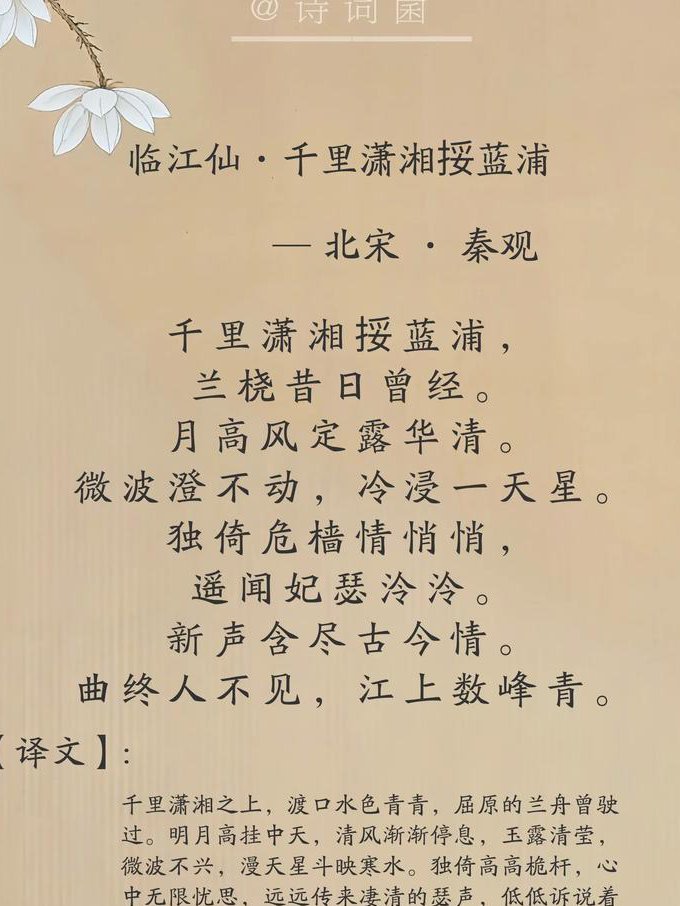 @诗词菌
临江仙·千里潇湘挼蓝浦
— 北宋 · 秦观
千里潇湘挼蓝浦，
兰桡昔日曾经。
月高风定露华清。
微波澄不动，冷浸一天星。
独倚危樯情悄悄，
遥闻妃瑟泠泠。
新声含尽古今情。
曲终人不见，江上数峰青。
【译文】：
千里潇湘之上，渡口水色青青，屈原的兰舟曾驶
过。明月高挂中天，清风渐渐停息，玉露清莹，
微波不兴，漫天星斗映寒水。独倚高高桅杆，心
中无限忧思，远远传来凄清的瑟声，低低诉说着